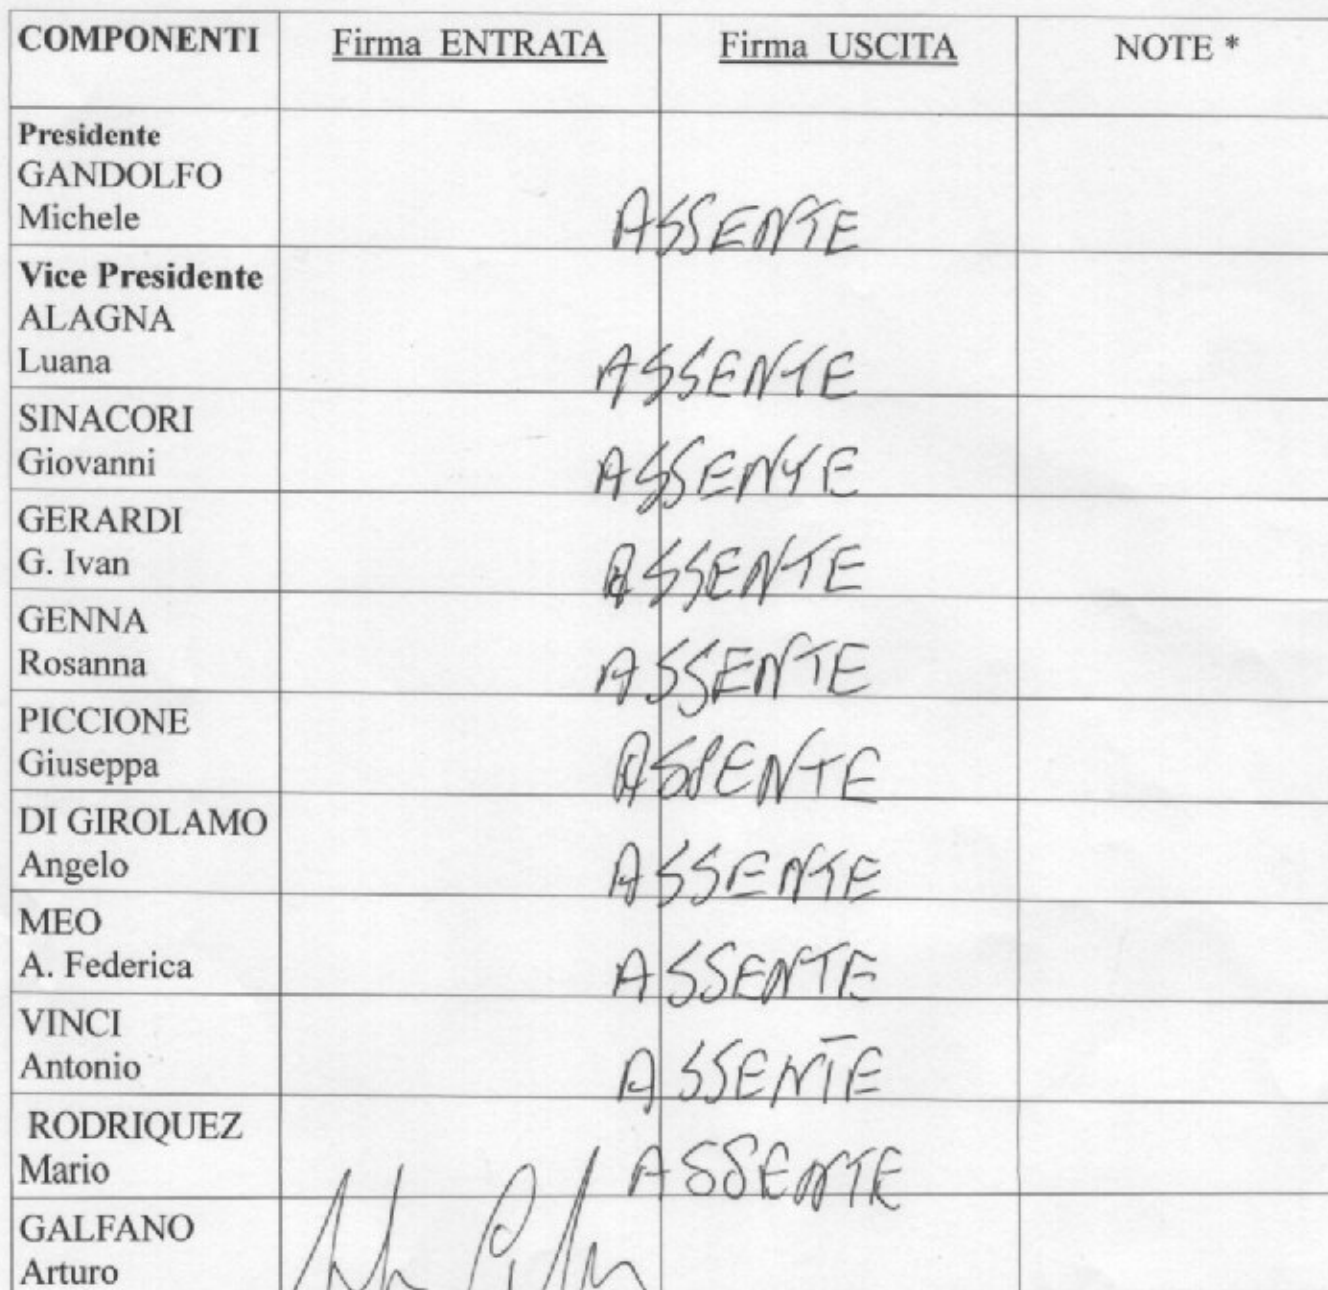 COMPONENTI Firma ENTRATA Firma USCITA NOTE *
Presidente
GANDOLFO
Michele
ASSENTE
Vice Presidente
ALAGNA
Luana
ASSENTE
SINACORI
Giovanni
ASSENTE
GERARDI
G. Ivan
ASSENTE
GENNA
Rosanna
ASSENTE
PICCIONE
Giuseppa
ASSENTE
DI GIROLAMO
Angelo
ASSENTE
MEO
A. Federica
ASSENTE
VINCI
Antonio
ASSENTE
RODRIQUEZ
Mario
ASSENTE
GALFANO
Arturo